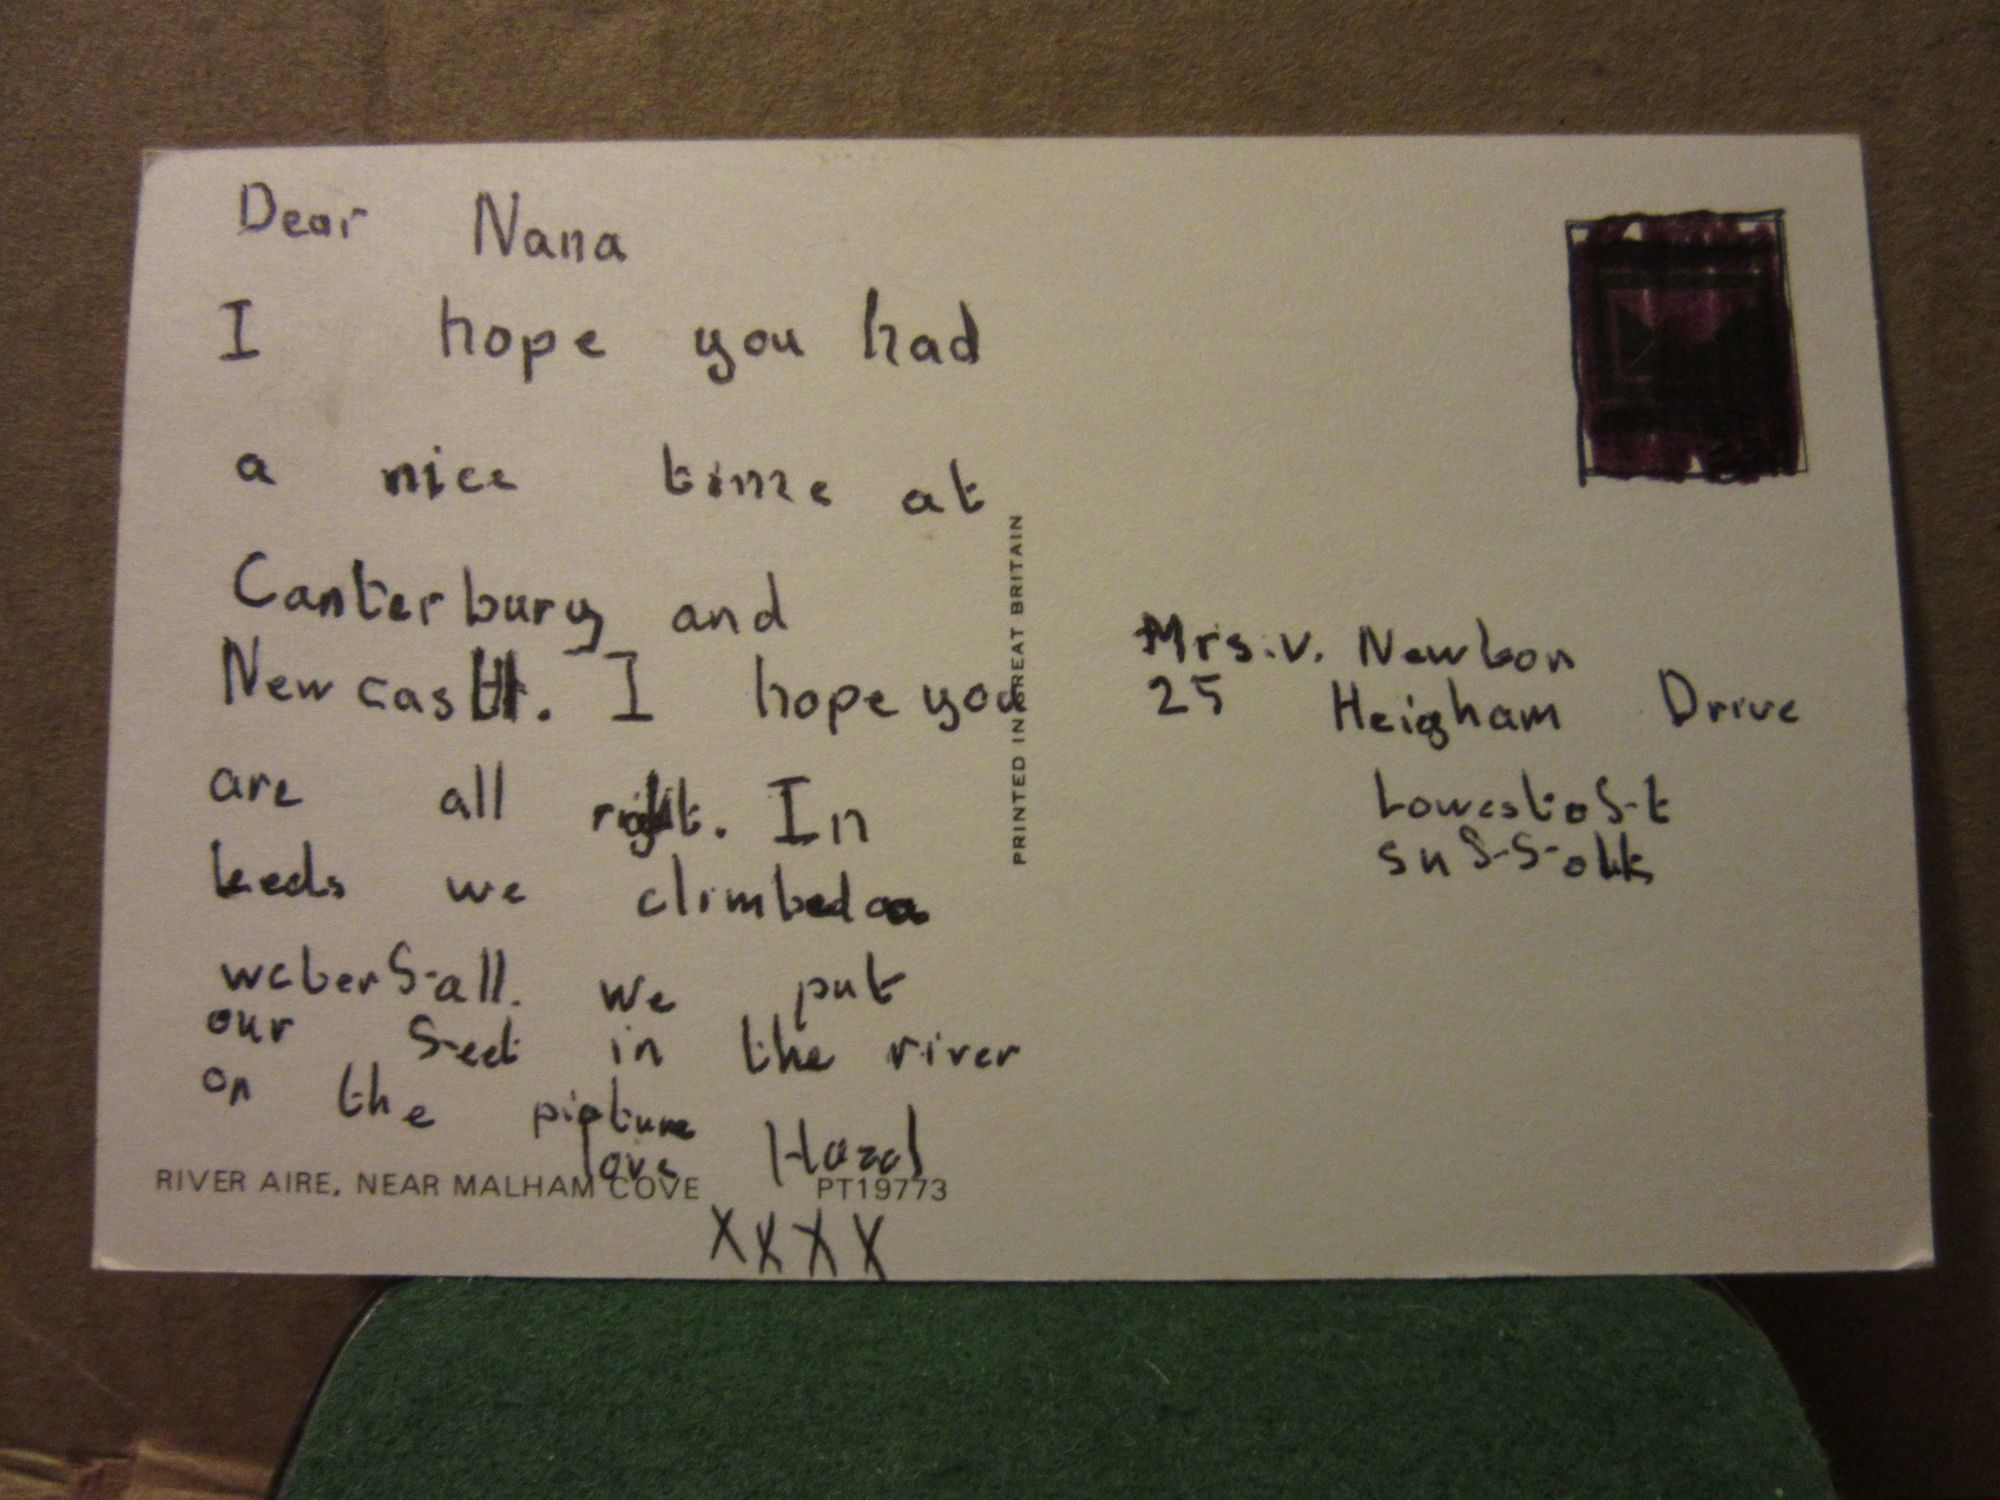 Dear Nana
I hope you had
a nice time at
Canterbury and
Newcastle. I hope you
are all right. In
Leeds we climbed a
weterfall. we put
our feet in the river
on the picture
love Hazel
XXXX
RIVER AIRE, NEAR MALHAM COVE PT19773
PRINTED IN GREAT BRITAIN
Mrs. V. Newton
25 Heigham Drive
Lowestoft
Suffolk